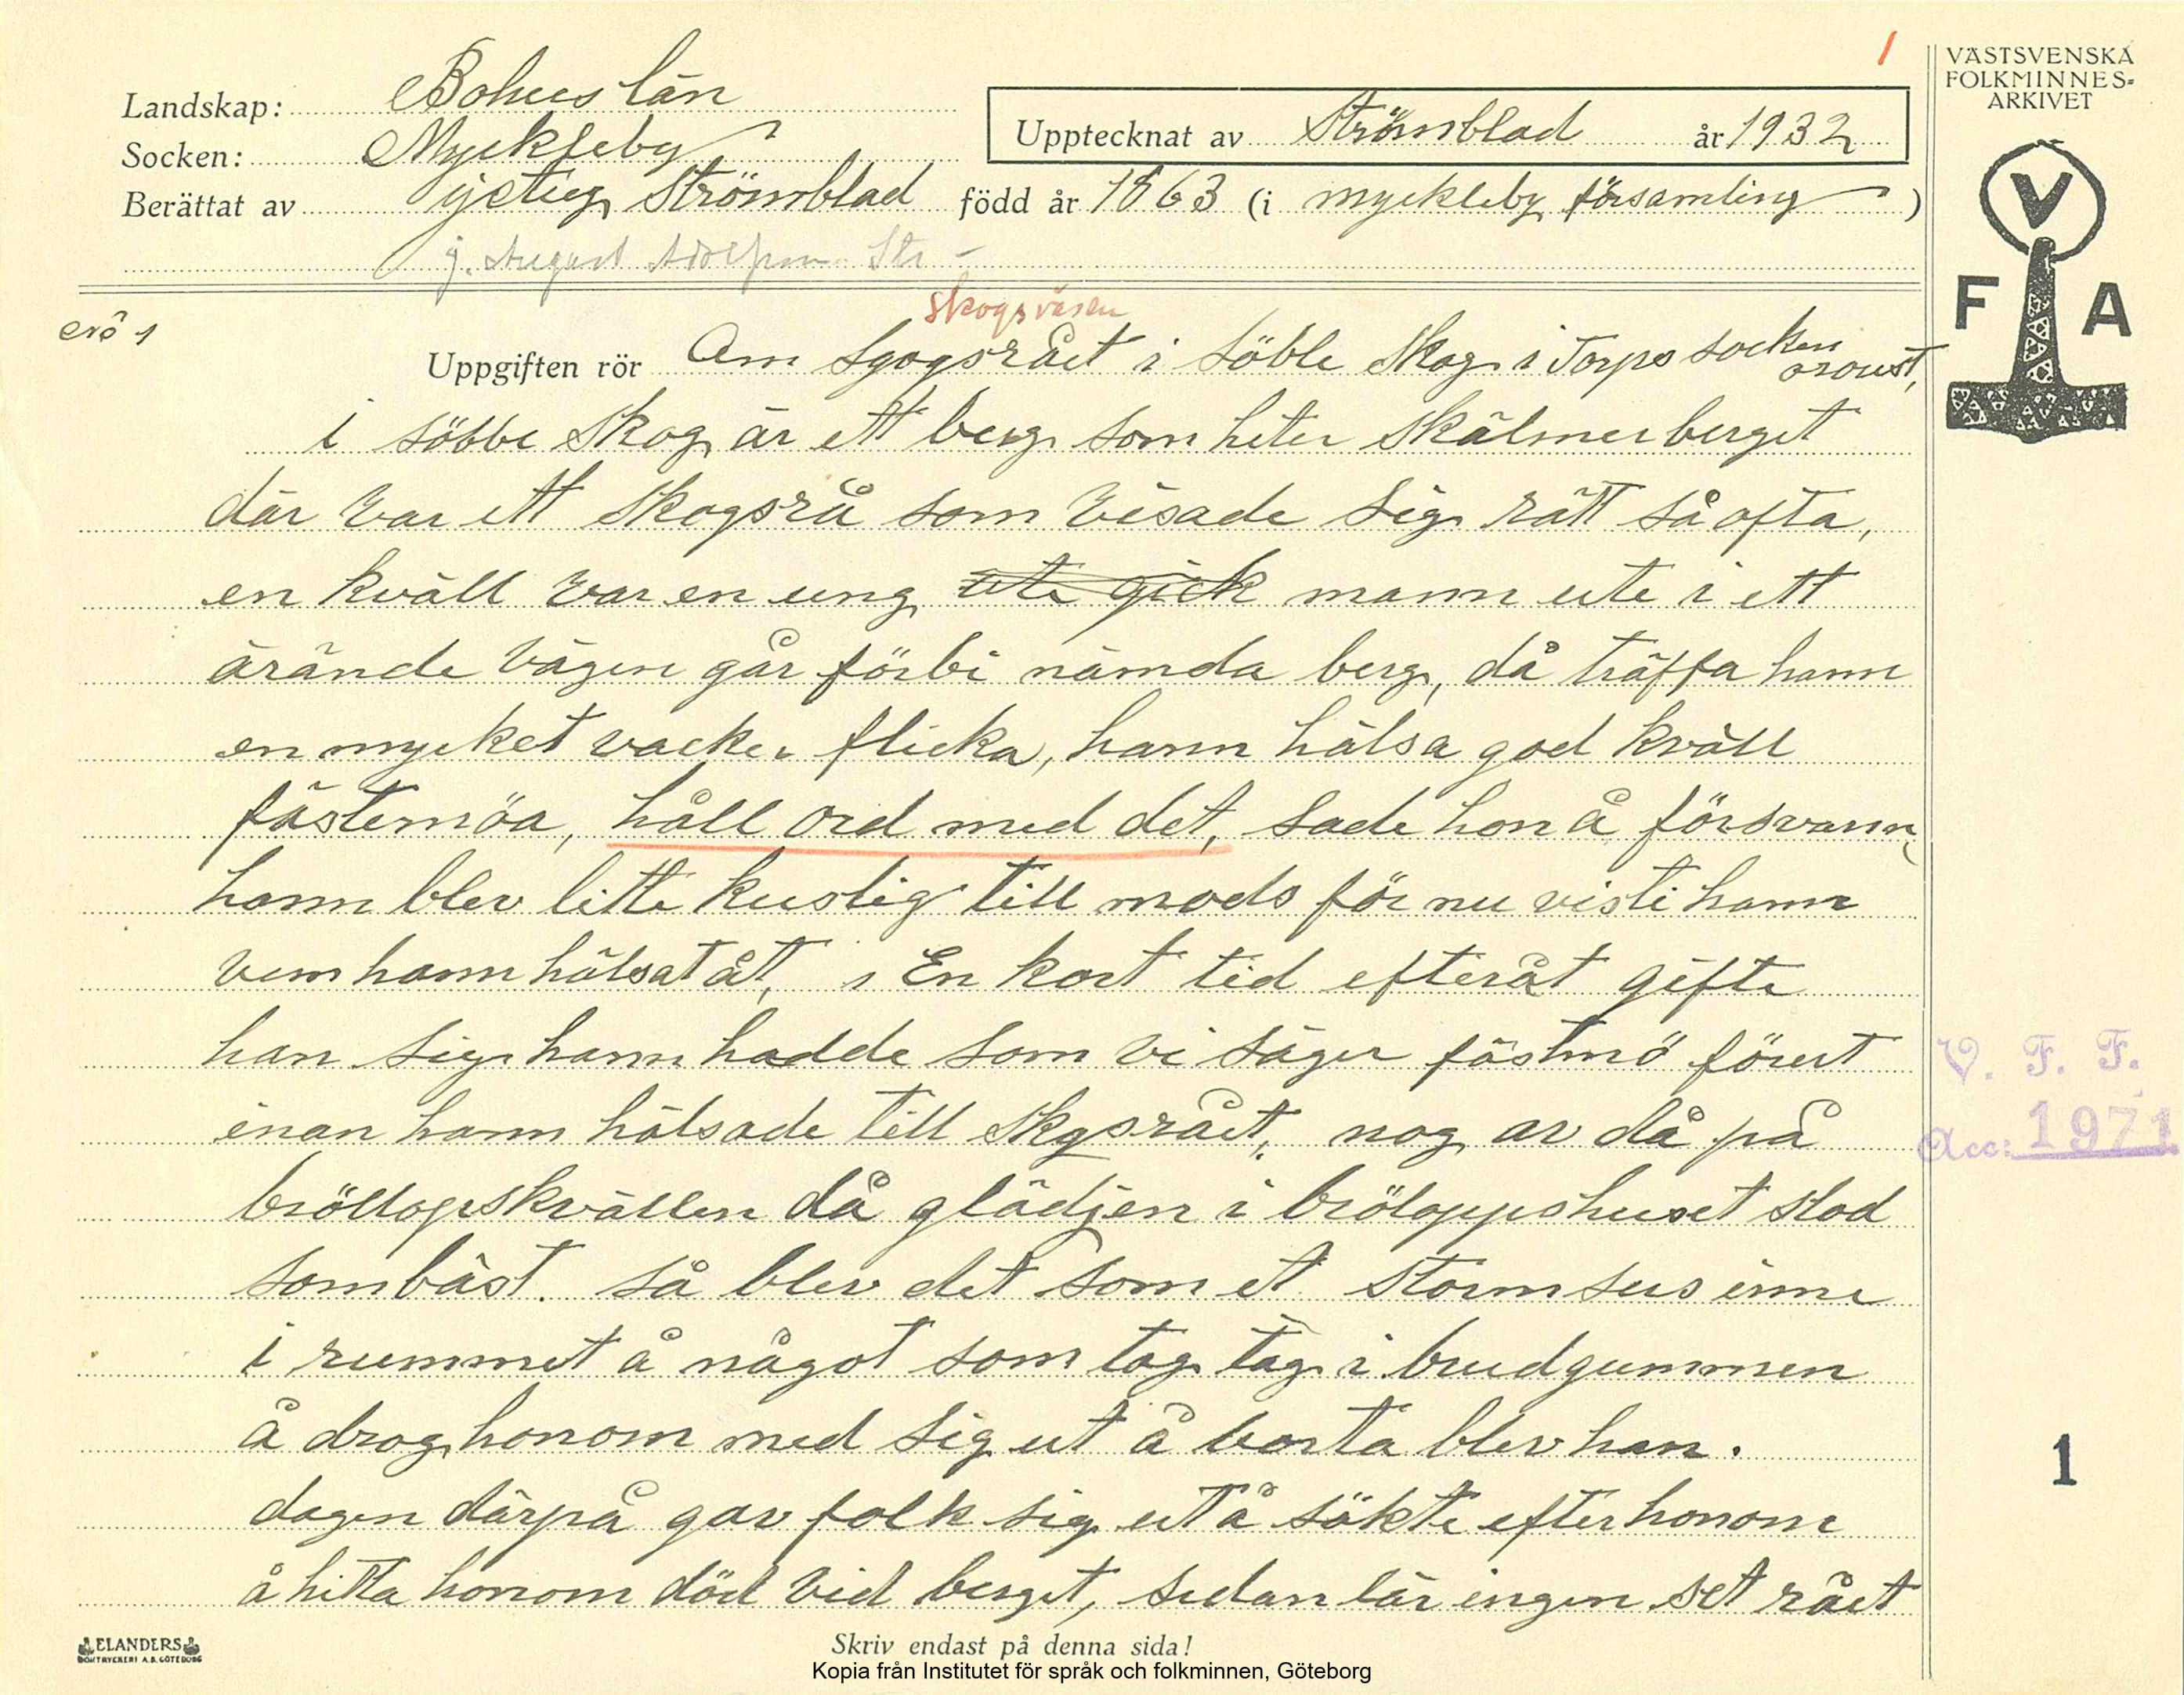 1
VÄSTSVENSKA
FOLKMINNES-
ARKIVET
Landskap: Bohuslän
Socken: Myckleby
Upptecknat av Strömblad år 1932
Berättat av Strömblad född år 1863 (i myckleby församling)
j. August Str -
V
F A
skogsväsen
orö 1
Uppgiften rör Om Sgogsrået i söble Skog i Torps socken oroust,
i söbbe Skog är ett berg som heter Skälmerberget
där var ett skogsrå som visade sig rätt så ofta,
en kväll var en ung ute gick mann ute i ett
ärände vägen går förbi nämda berg, då träffa hann
en mycket vacker flicka, hann hälsa god kväll
fästemöa, håll ord med det, sade hon å försvann
hann blev litte kuslig till mods för nu viste hann
vem hann hälsat åt, En kort tid efteråt gifte
han sig hann hadde som vi säger fästmö förut
inan hann hälsade till skgsrået, nog av då på
bröllopskvällen då glädjen i bröloppshuset stod
som bäst. så blev det som et stormsus inne
i rummet å något som tog tag i brudgummen
å drog honom med sig ut å borta blev han.
dagen därpå gav folk sig ut å sökte efter honom
å hitta honom död vid berget, sedan lär ingen set rået
V. F. F.
Acc: 1971
1
ELANDERS
BOKTRYCKERI A.B. GÖTEBORG
Skriv endast på denna sida!
Kopia från Institutet för språk och folkminnen, Göteborg